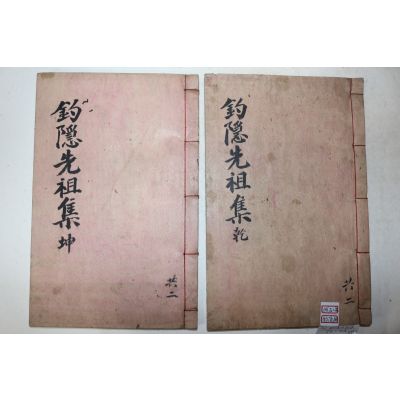 釣隱先祖集 乾
共二
釣隱先祖集 坤
共二